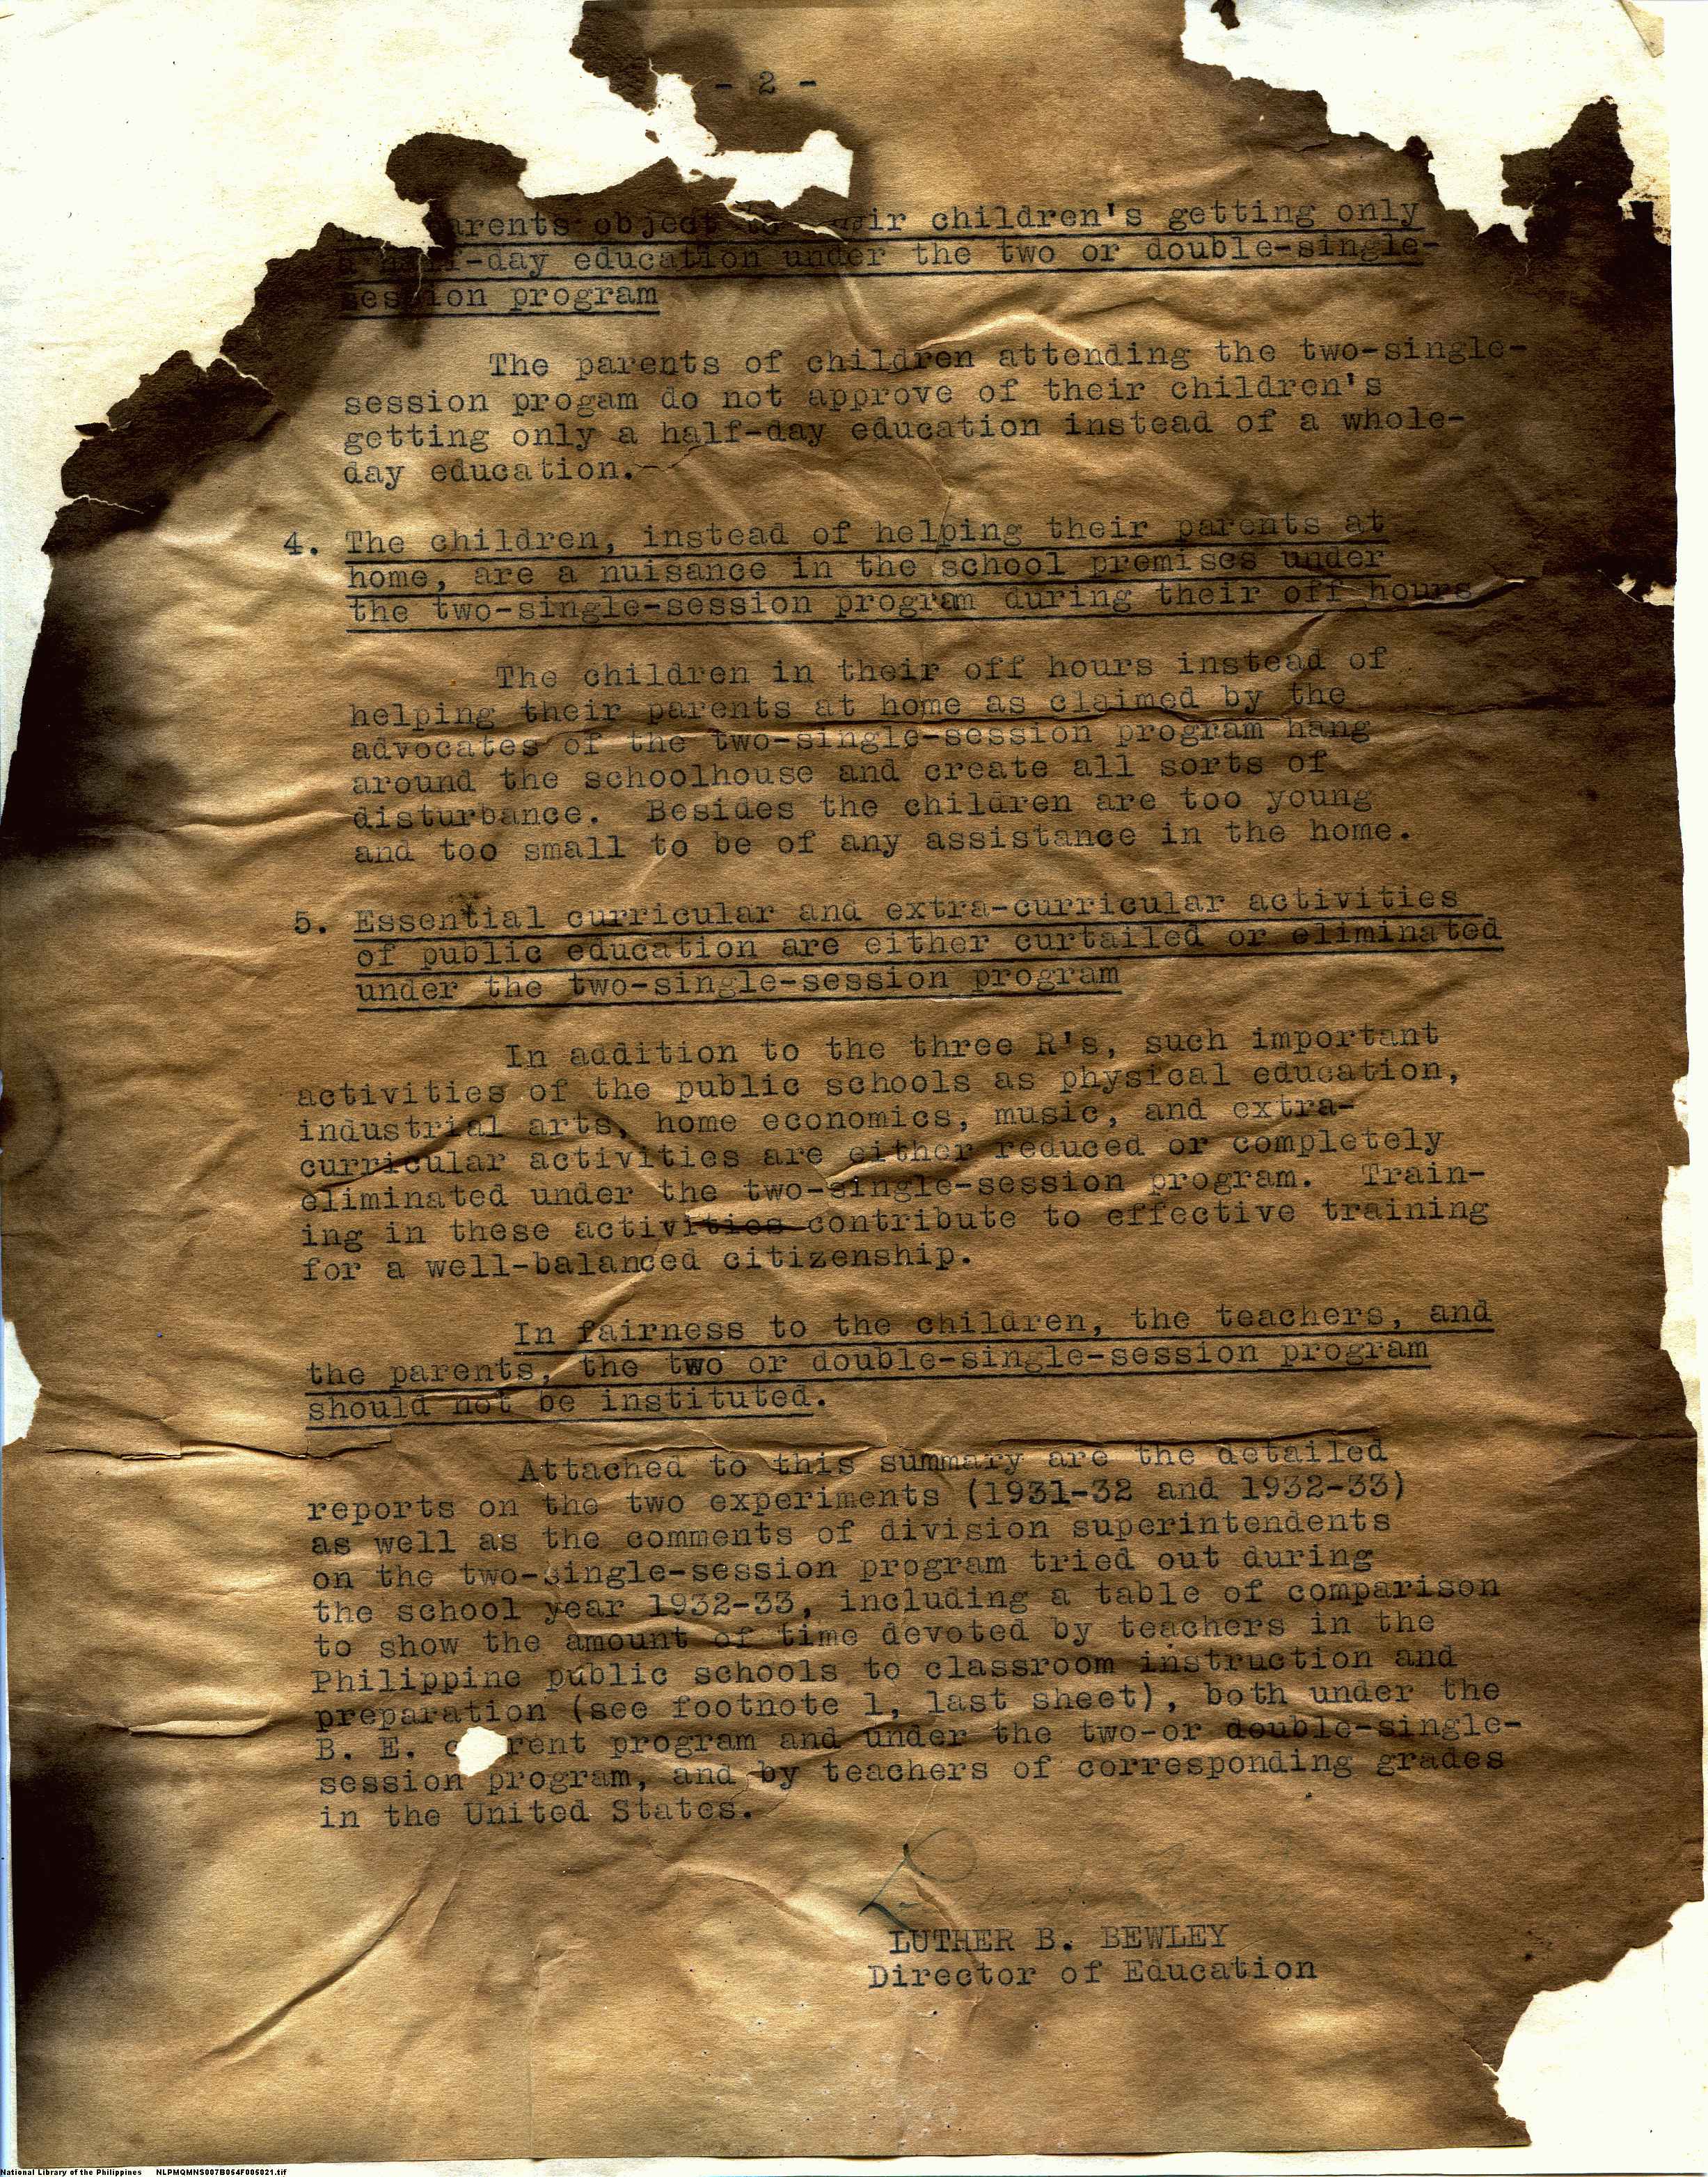 - 2 -
parents object to their children's getting only
a half-day education under the two or double-single-
session program
The parents of children attending the two-single-
session progam do not approve of their children's
getting only a half-day education instead of a whole-
day education.
4. The children, instead of helping their parents at
home, are a nuisance in the school premises under
the two-single-session program during their off hours
The children in their off hours instead of
helping their parents at home as claimed by the
advocates of the two-single-session program hang
around the schoolhouse and create all sorts of
disturbance. Besides the children are too young
and too small to be of any assistance in the home.
5. Essential curricular and extra-curricular activities
of public education are either curtailed or eliminated
under the two-single-session program
In addition to the three R's, such important
activities of the public schools as physical education,
industrial arts, home economics, music, and extra-
curricular activities are either reduced or completely
eliminated under the two-single-session program. Train-
ing in these activities contribute to effective training
for a well-balanced citizenship.
In fairness to the children, the teachers, and
the parents, the two or double-single-session program
should not be instituted.
Attached to this summary are the detailed
reports on the two experiments (1931-32 and 1932-33)
as well as the comments of division superintendents
on the two-single-session program tried out during
the school year 1932-33, including a table of comparison
to show the amount of time devoted by teachers in the
Philippine public schools to classroom instruction and
preparation (see footnote 1, last sheet), both under the
B. E. c rent program and under the two-or double-single-
session program, and by teachers of corresponding grades
in the United States.
LUTHER B. BEWLEY
Director of Education
National Library of the Philippines NLPMQMNS007B054F005021.tif